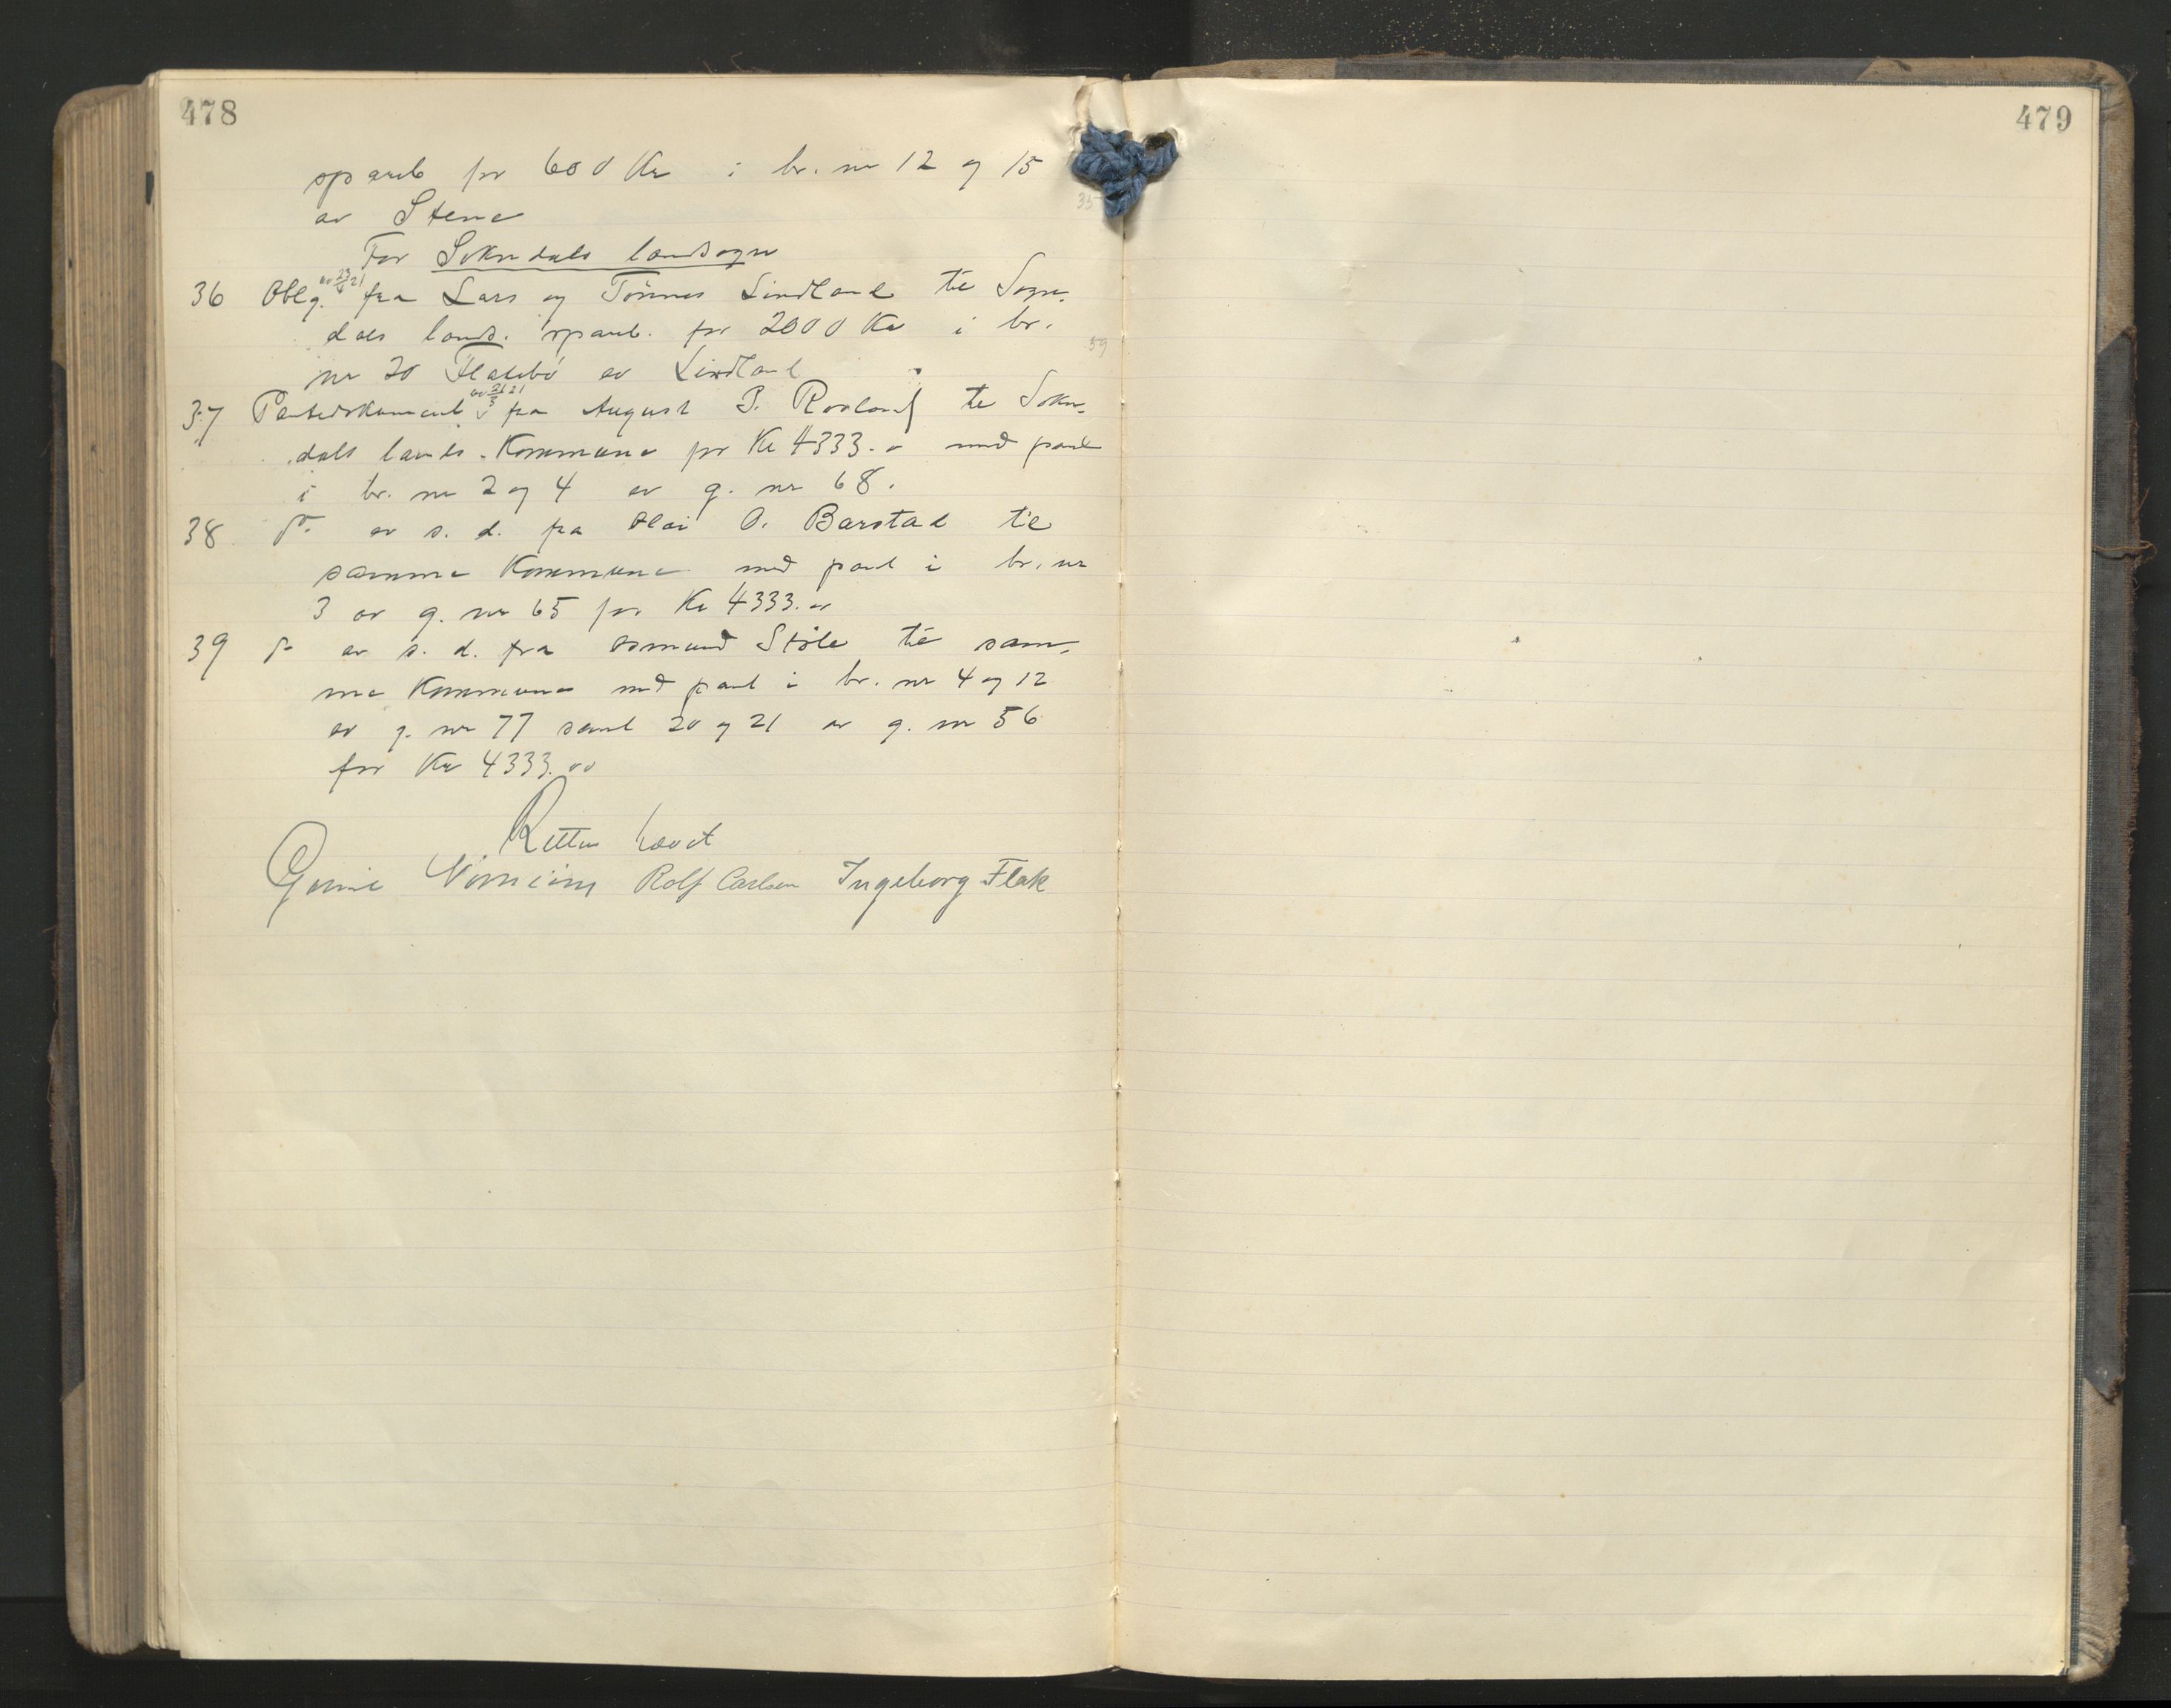 478
spareb for 600 Kr i br. nr 12 og 15
av Stene
For Sokndals landsogn
36 Oblg. av 23/4 21 fra Lars og Tønnes Lindland til Sogn-
dals lands. spareb. for 2000 Kr i br.
nr 20 av Lindland
37 Pantedokument av 21/3 21 fra August P. Rosland til Sokn-
dals lands. Kommune for Kr 4333.00 med pant
i br. nr 2 og 4 av g. nr 68.
38 Do av s. d. fra O. Barstad til
samme Kommune med pant i br. nr
3 av g. nr 65 for Kr 4333.00
39 Do av s. d. fra Osmund Støle til sam-
me Kommune med pant i br. nr 4 og 12
av g. nr 77 samt 20 og 21 av g. nr 56
for Kr 4333.00
Retten hævet
Rolf Carlsen Ingeborg Flak
35
39
479